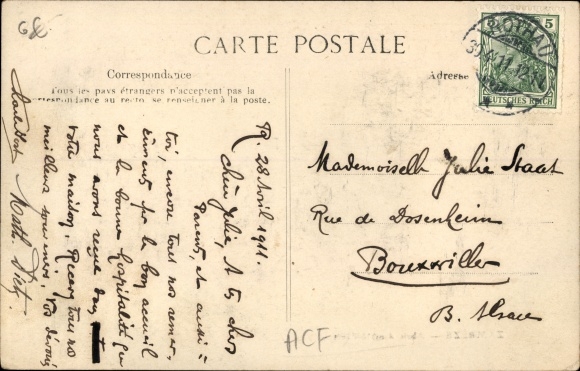 CARTE POSTALE
Correspondance
Tous les pays étrangers n'acceptent pas la
correspondance au recto, se renseigner à la poste.
Adresse
5
DEUTSCHES REICH
ROTHAU
Ro. 28 Avril 1911.
Chère Julie, A tes chers
Parents, et aussi à
toi, encore tous nos remer-
ciements pr le bon accueil
et la bonne hospitalité que
nous avons reçue dans
votre maison. Recevez tous nos
meilleurs souvenirs, Vos dévoués
Math. Dietz
Mademoiselle Julie Staat
Rue de Dosenheim
Bouxwiller
B. Alsace
ACF